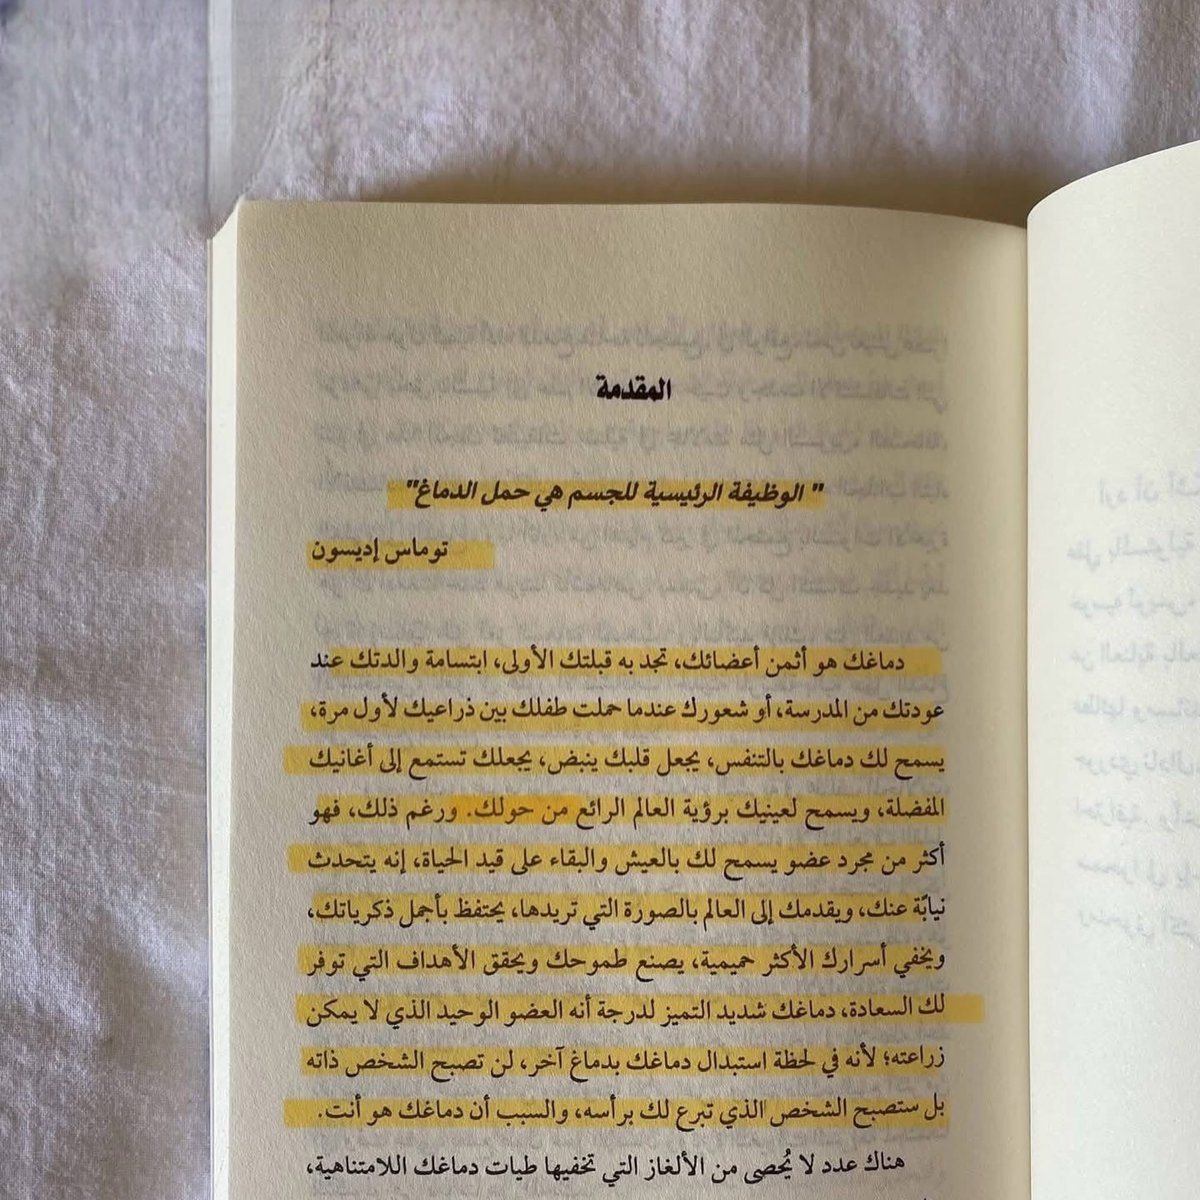 المقدمة
" الوظيفة الرئيسية للجسم هي حمل الدماغ"
توماس إديسون
دماغك هو أثمن أعضائك، تجد به قبلتك الأولى، ابتسامة والدتك عند
عودتك من المدرسة، أو شعورك عندما حملت طفلك بين ذراعيك لأول مرة،
يسمح لك دماغك بالتنفس، يجعل قلبك ينبض، يجعلك تستمع إلى أغانيك
المفضلة، ويسمح لعينيك برؤية العالم الرائع من حولك. ورغم ذلك، فهو
أكثر من مجرد عضو يسمح لك بالعيش والبقاء على قيد الحياة، إنه يتحدث
نيابًة عنك، ويقدمك إلى العالم بالصورة التي تريدها، يحتفظ بأجمل ذكرياتك،
ويخفي أسرارك الأكثر حميمية، يصنع طموحك ويحقق الأهداف التي توفر
لك السعادة، دماغك شديد التميز لدرجة أنه العضو الوحيد الذي لا يمكن
زراعته؛ لأنه في لحظة استبدال دماغك بدماغ آخر، لن تصبح الشخص ذاته
بل ستصبح الشخص الذي تبرع لك برأسه، والسبب أن دماغك هو أنت.
هناك عدد لا يُحصى من الألغاز التي تخفيها طيات دماغك اللامتناهية،